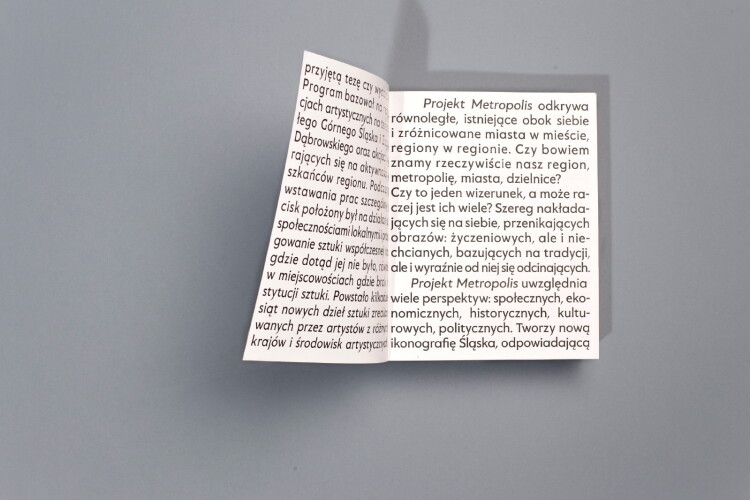 przyjętą tezę czy
Program bazował na
cjach artystycznych na
łego Górnego Śląska i
Dąbrowskiego oraz
rających się na
szkańców regionu.
wstawania prac
cisk położony był na
społecznościami lokalnymi
gowanie sztuki
gdzie dotąd jej nie było,
w miejscowościach gdzie
stytucji sztuki. Powstało
siąt nowych dzieł sztuki
wanych przez artystów z
krajów i środowisk
Projekt Metropolis odkrywa
równoległe, istniejące obok siebie
i zróżnicowane miasta w mieście,
regiony w regionie. Czy bowiem
znamy rzeczywiście nasz region,
metropolię, miasta, dzielnice?
Czy to jeden wizerunek, a może ra-
czej jest ich wiele? Szereg nakłada-
jących się na siebie, przenikających
obrazów: życzeniowych, ale i nie-
chcianych, bazujących na tradycji,
ale i wyraźnie od niej się odcinających.
Projekt Metropolis uwzględnia
wiele perspektyw: społecznych, eko-
nomicznych, historycznych, kultu-
rowych, politycznych. Tworzy nową
ikonografię Śląska, odpowiadającą